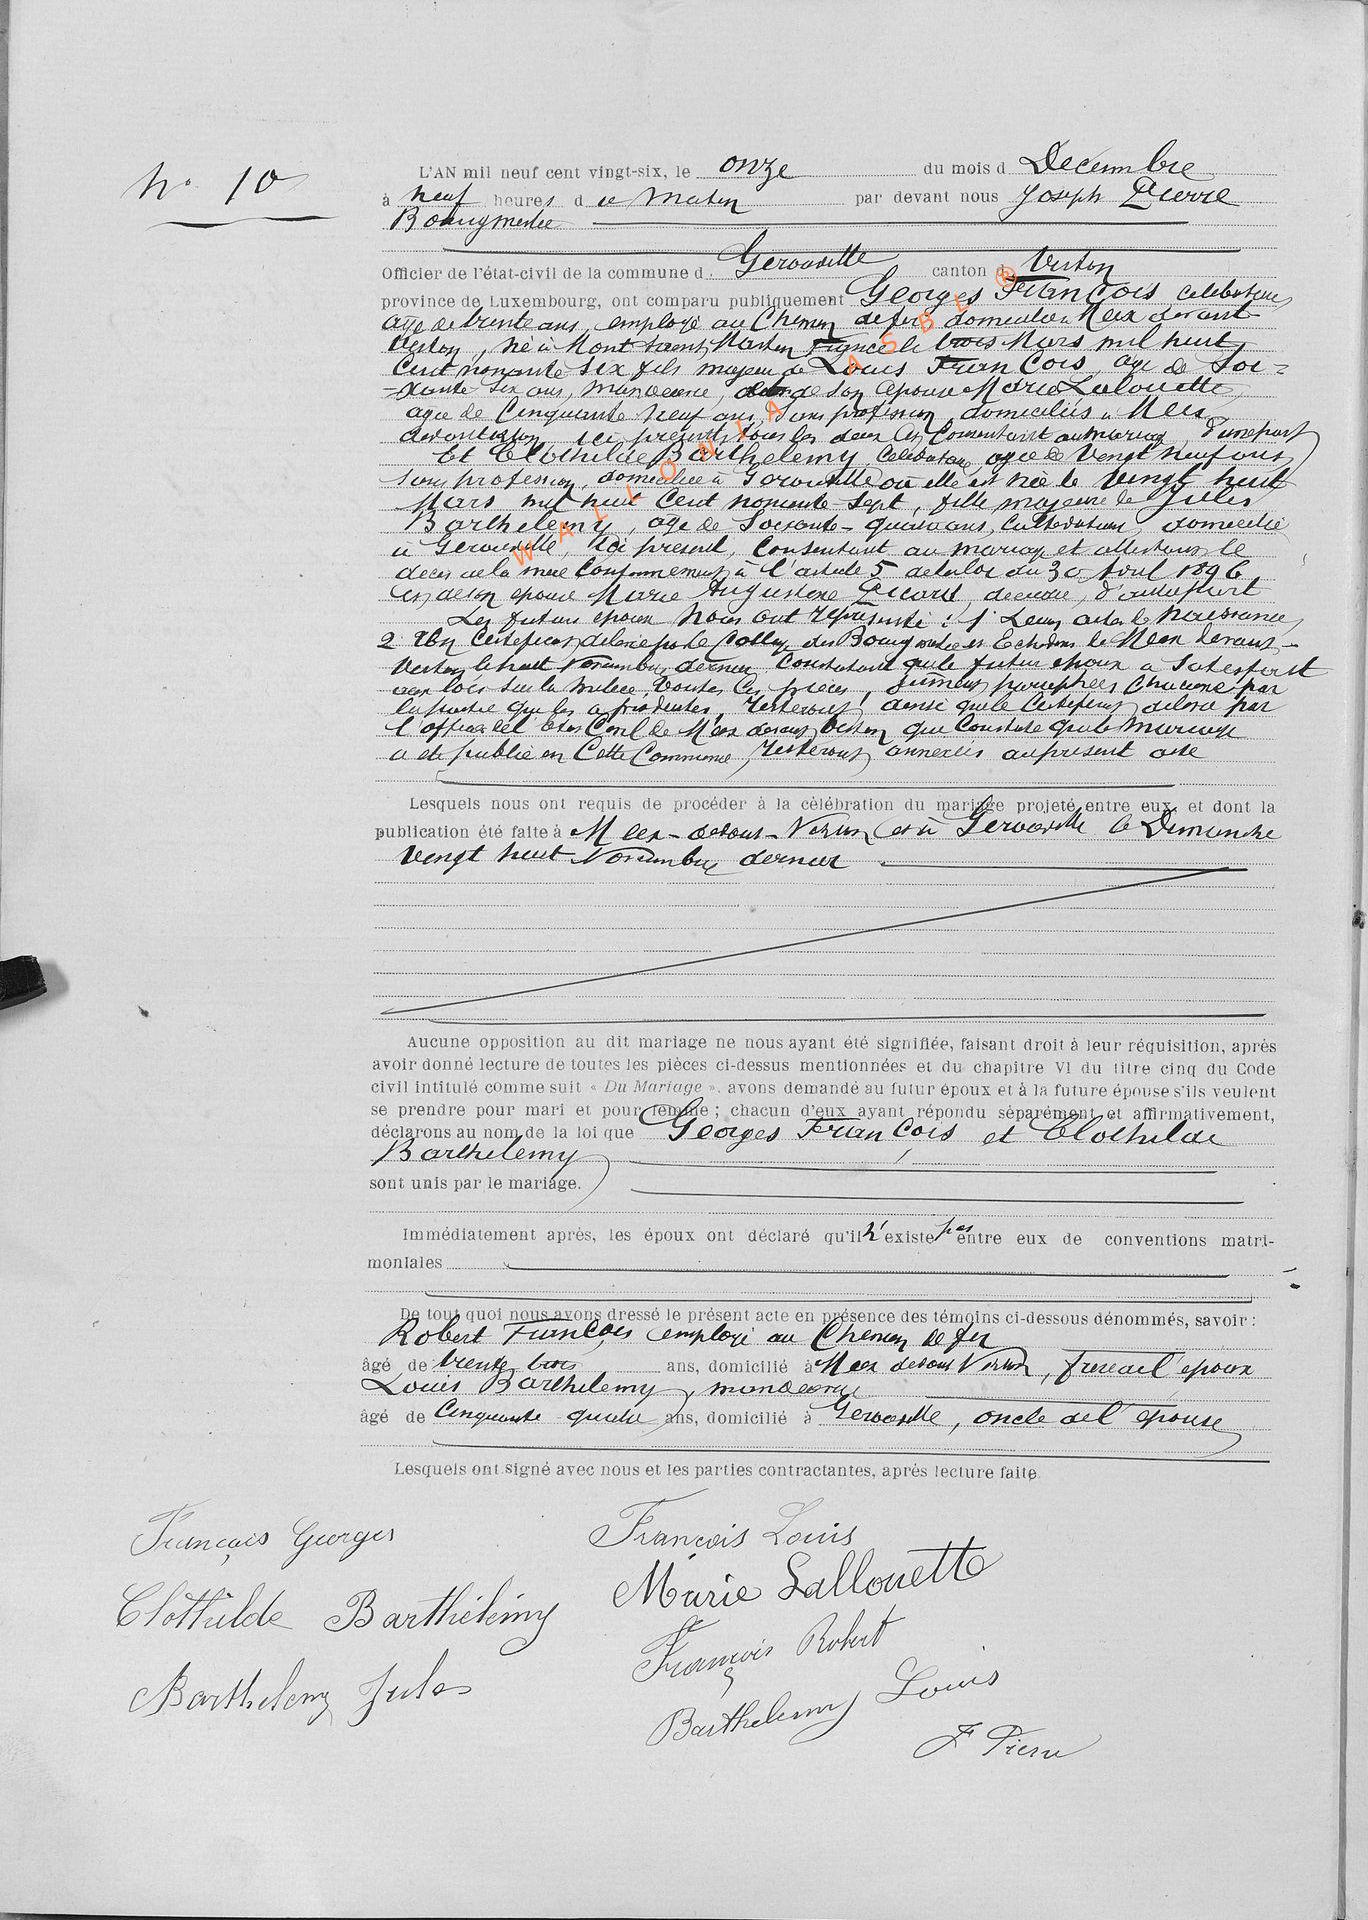 N° 10
L'AN mil neuf cent vingt-six, le onze du mois d Decembre
à neuf heures d u matin par devant nous Joseph Pierre
Bourgmestre
Officier de l'état-civil de la commune d. Gerouville canton d Virton
province de Luxembourg, ont comparu publiquement Georges François, celebataire
agé de trente ans, employé au Chemin de fer domicilié à Meix devant
Virton, né à Mont Saint Martin France le trois Mars mil huit
Cent nonante six fils majeur de Louis François, agé de Soi-
-xante six ans, manoeuvre, et de son épouse Marie Lalouette
agée de Cinquante neuf ans, Sans profession, domiciliés à Meix
devant Virton, ici présents tous les deux et Consentant au mariage, d'une part
Et Clothilde Barthelemy Celebataire agée de Vingt neuf ans
sans profession, domiciliée à Gerouville où elle est née le Vingt huit
Mars mil huit Cent nonante-Sept, fille majeure de Jules
Barthelemy, age de Soixante-quatre ans, Cultivateur, domicilié
à Gerouville, ici présent, Consentant au mariage et attestant le
deces de la mere Conformement à l'article 5 de la loi du 30 Avril 1896
et de son epouse Marie Augustine Picard, decedée, d'autre part
Les futurs epoux Nous ont représenté : 1° Leurs actes de Naissance,
2° Un Certificat délivré par le College des Bourgmestre et Echevins de Meix devant-
Virton, le huit Novembre dernier Constatant que le futur époux a Satisfait
aux lois sur la milice, toutes ces pièces, dûment paraphées chacune par
la partie qui les a produites, resteront, ainsi que le Certificat délivré par
l'officier de l'état Civil de Meix devant Virton qui Constate que le mariage
a été publié en Cette Commune, resteront annexées au present acte
Lesquels nous ont requis de procéder à la célébration du mariage projeté entre eux, et dont la
publication été faite à Meix-devant-Virton et à Gerouville le Dimanche
Vingt huit Novembre dernier
Aucune opposition au dit mariage ne nous ayant été signifiée, faisant droit à leur réquisition, après
avoir donné lecture de toutes les pièces ci-dessus mentionnées et du chapitre VI du titre cinq du Code
civil intitulé comme suit « Du Mariage ». avons demandé au futur époux et à la future épouse s'ils veulent
se prendre pour mari et pour femme ; chacun d'eux ayant répondu séparément et affirmativement,
déclarons au nom de la loi que Georges François et Clothilde
Barthelemy
sont unis par le mariage.
Immédiatement après, les époux ont déclaré qu'il n'existe pas entre eux de conventions matri-
moniales
De tout quoi nous avons dressé le présent acte en présence des témoins ci-dessous dénommés, savoir :
Robert François employé au Chemin de fer
âgé de trente trois ans, domicilié à Meix devant Virton, frere de l'époux
Louis Barthelemy, manoeuvre
âgé de Cinquante quatre ans, domicilié à Gerouville, oncle de l'epouse
Lesquels ont signé avec nous et les parties contractantes, après lecture faite
François Georges
François Louis
Marie Lallouette
Clothilde Barthélémy
François Robert
Barthelemy Jules
Barthelemy Louis
J Pierre
WALLONIA ASBL ®